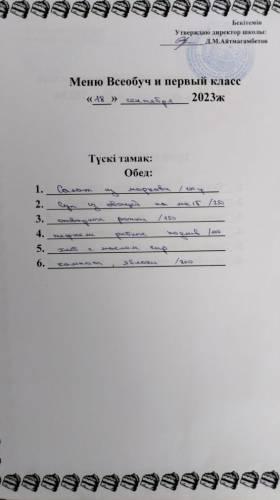 Бекітемін
Утверждаю директор школы:
Л.М.Айтмагамбетов
Меню Всеобуч и первый класс
«18» сентября 2023ж
Түскі тамақ:
Обед:
1. Салат из моркови /
2. Суп из овощей на /250
3. /150
4. /100
5. хлеб с маслом сыр
6. компот, яблоки /200